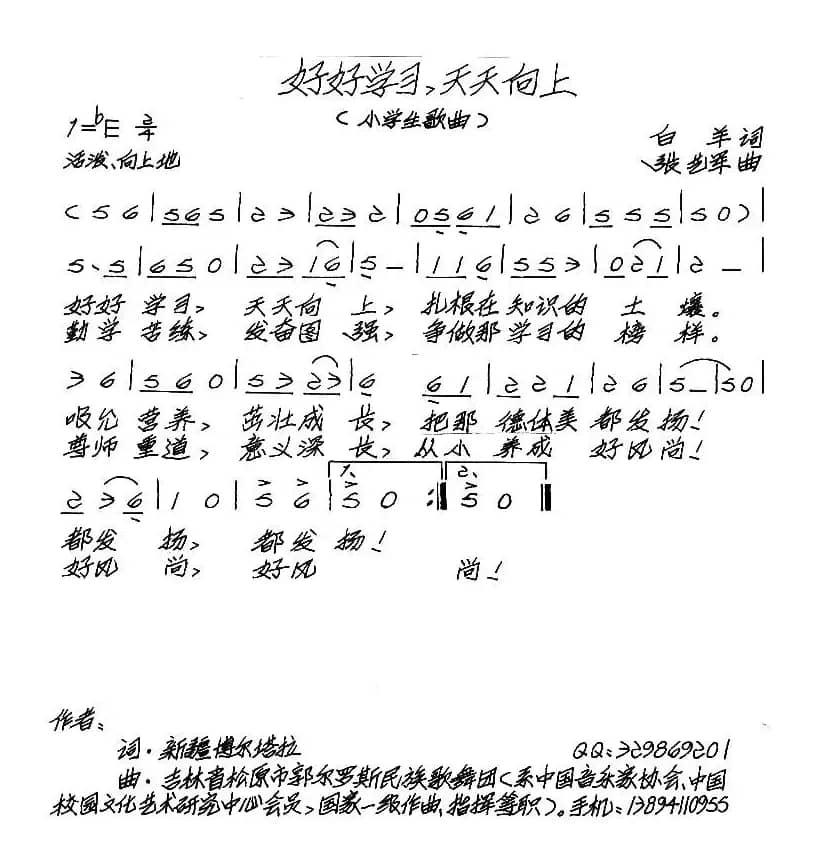 好好学习,天天向上
(小学生歌曲)
1=bE 2/4
白羊词
活泼、向上地
张艺军曲
(5 6 | 5 6 5 | 2 3 | 2 3 2 | 0 5 6 1 | 2 6 | 5 5 5 | 5 0) |
5、5 | 6 5 0 | 2 3 1 6 | 5 – | 1 1 6 | 5 5 3 | 0 2 1 | 2 – |
好好学习,天天向上,扎根在知识的土壤。
勤学苦练,发奋图强,争做那学习的榜样。
3 6 | 5 6 0 | 5 3 2 3 | 6 6 1 | 2 2 1 | 2 6 | 5 – | 5 0 |
吸允营养,茁壮成长,把那德体美都发扬!
尊师重道,意义深长,从小养成好风尚!
1、 2、
2 3 6 | 1 0 | 5 6 | 5 0 :‖ 5 0 ‖
都发扬,都发扬!
好风尚,好风尚!
作者:
词·新疆博尔塔拉 QQ:329869201
曲·吉林省松原市郭尔罗斯民族歌舞团(系中国音乐家协会、中国
校园文化艺术研究中心会员,国家一级作曲、指挥等职)。手机:13894110955